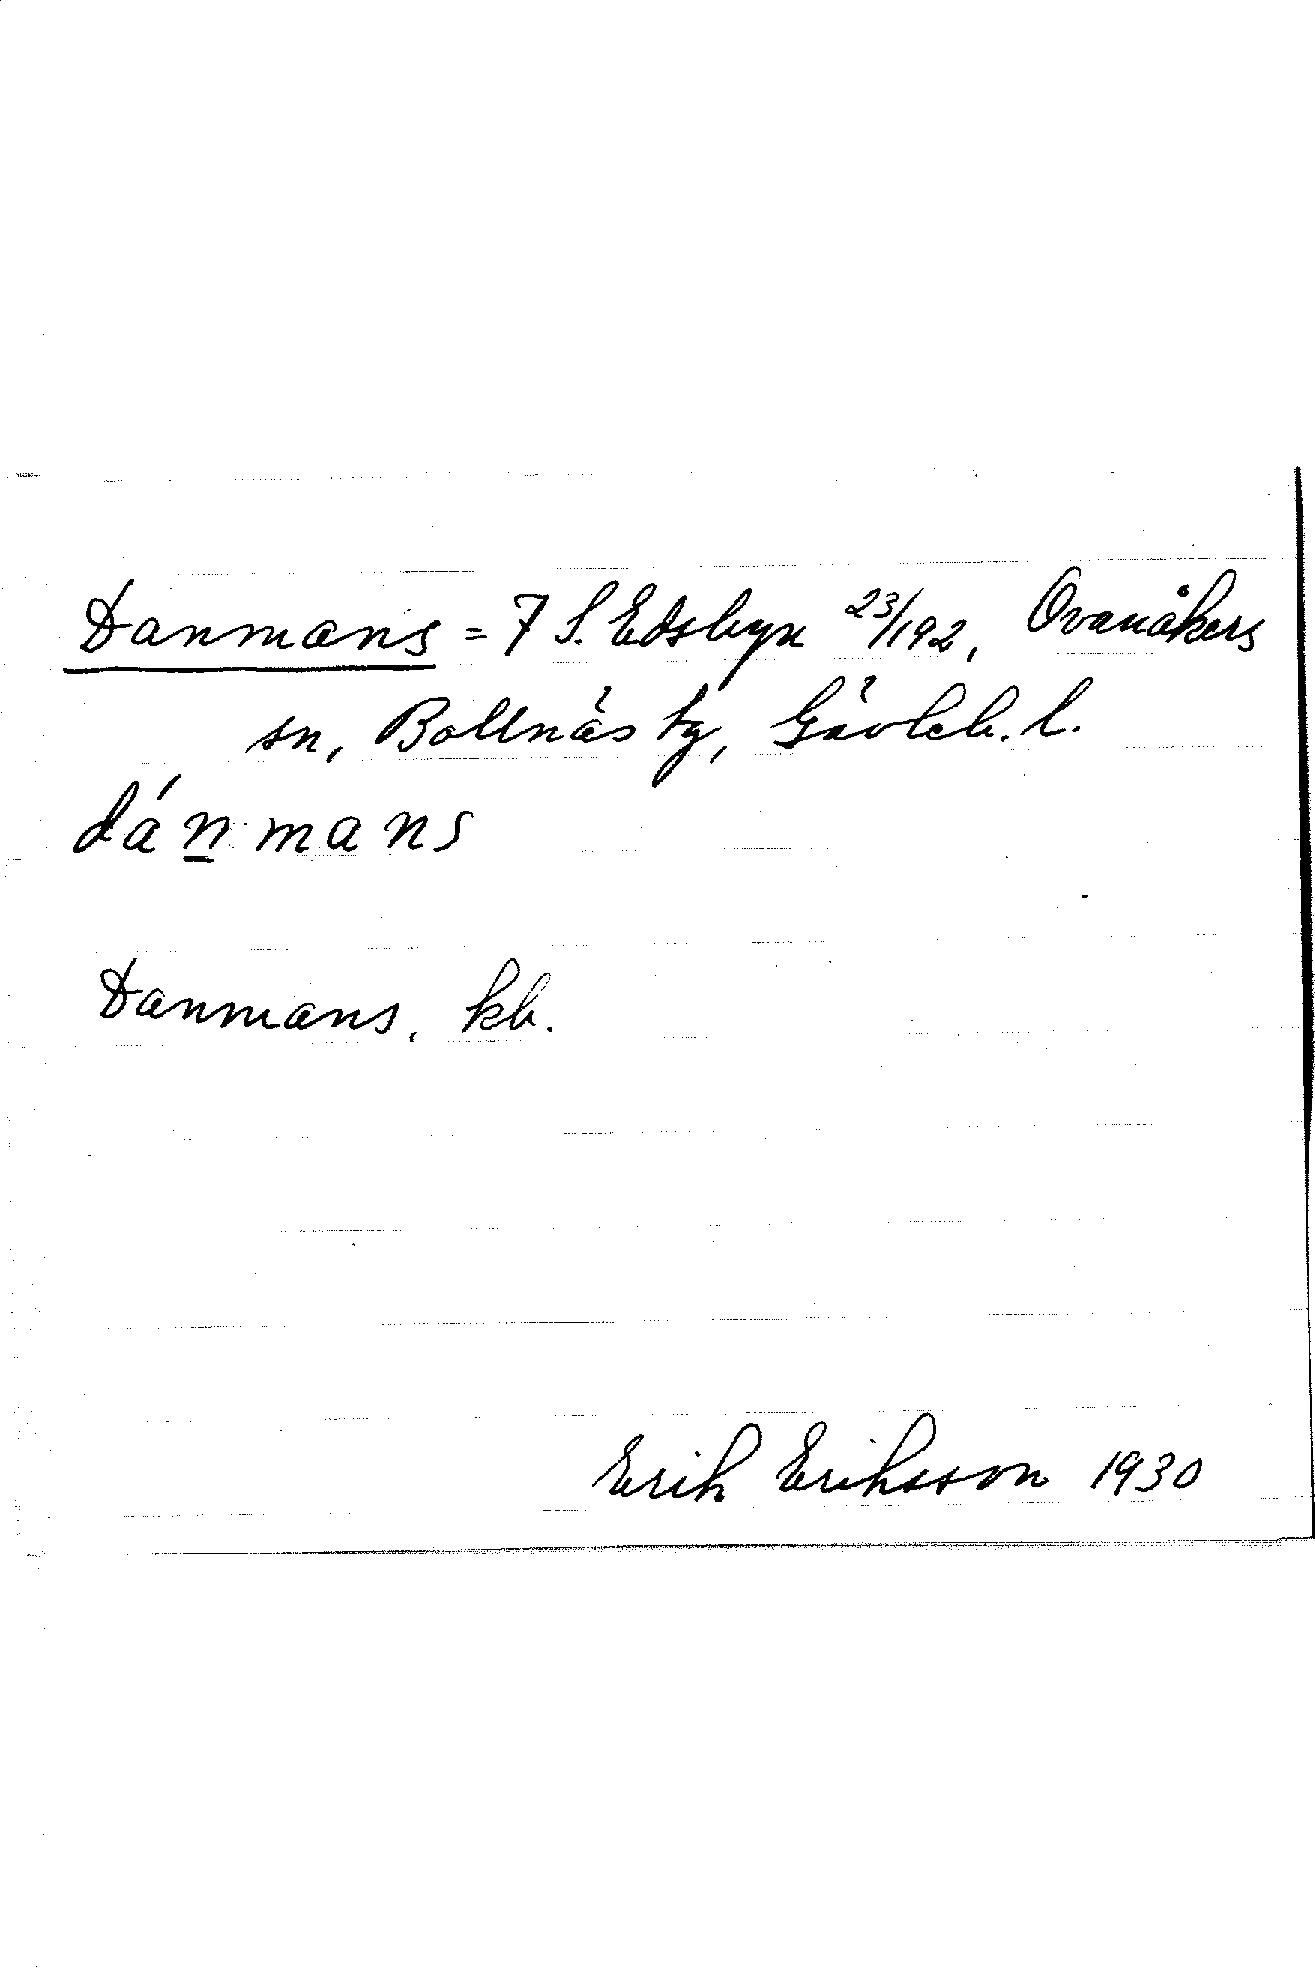 Danmans = 7 S. Edsbyn 23/192, Ovanåkers
sn, Bollnäs tg, Gävleb. l.
dánmans
Danmans, kb.
Erik Eriksson 1930